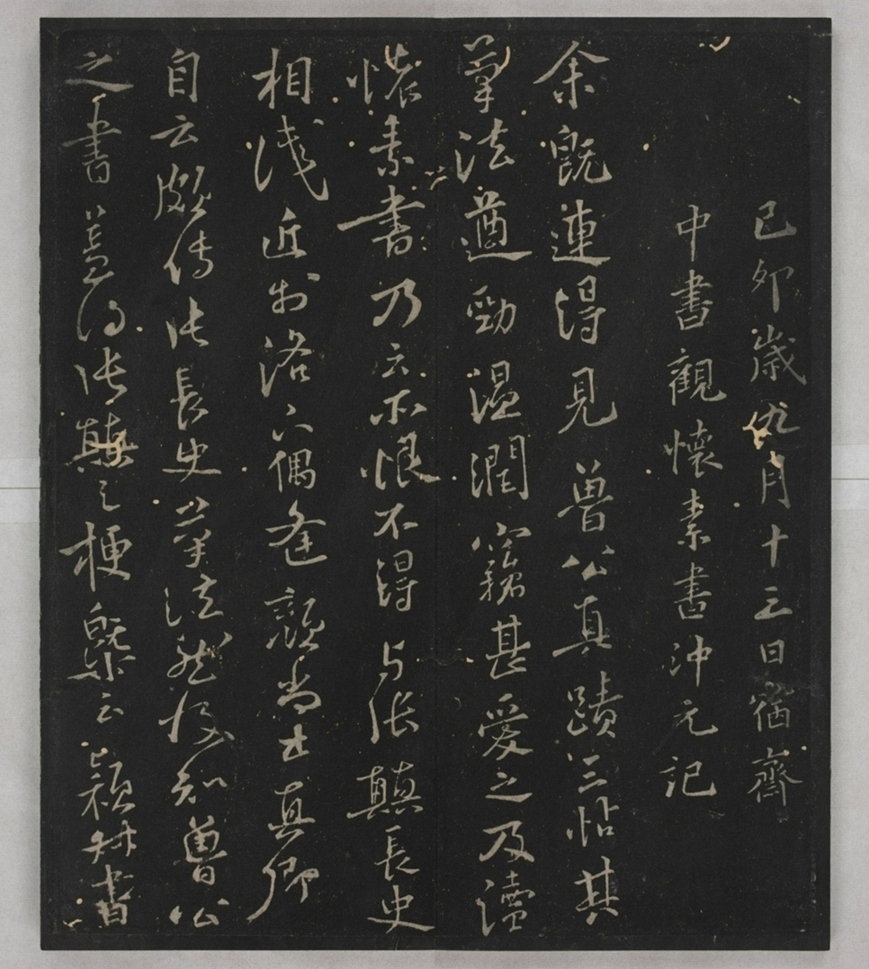 己卯歲九月十三日宿齋
中書觀懷素書沖元記
余既連得見魯公真蹟三帖其
筆法遒勁溫潤竊甚愛之及讀
懷素書乃云亦恨不得與張顛長史
相識近於洛下偶逢顏尚書真卿
自云頗傳張長史筆法然後知魯公
之書蓋得張顛之梗槩云穎叔書